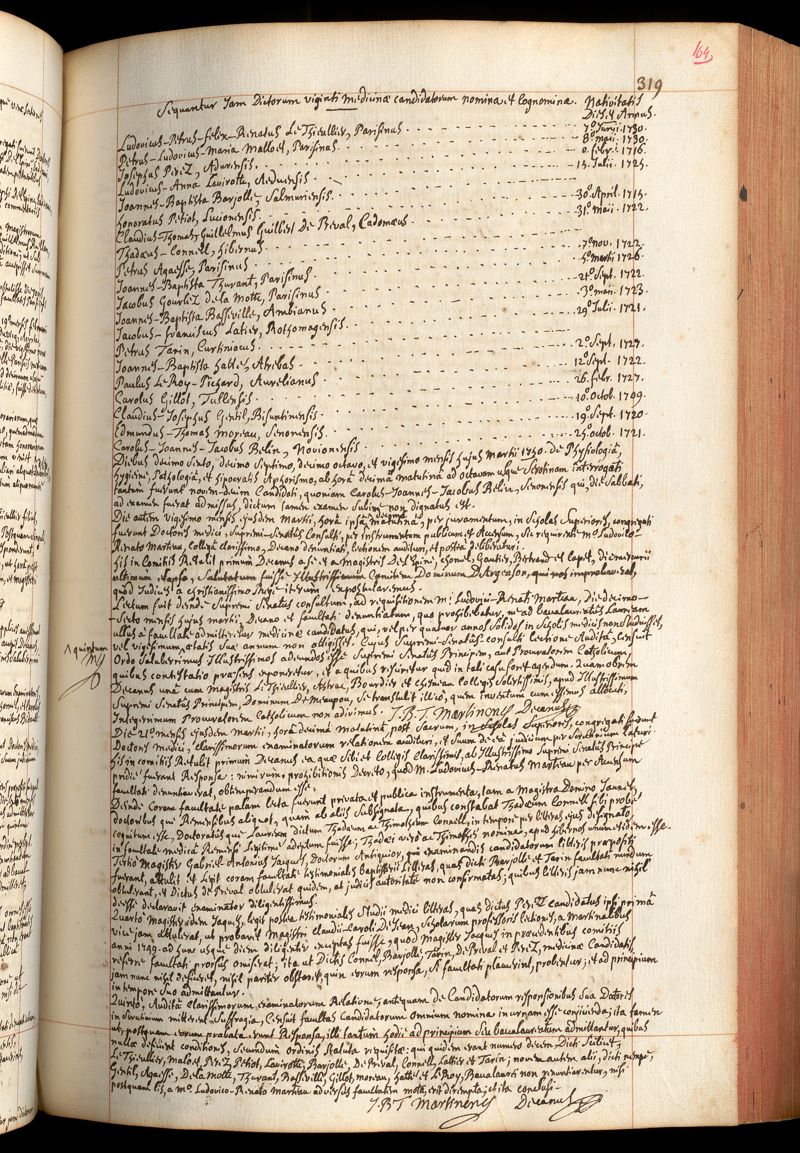 164
319
Sequuntur Jam Dictorum viginti Medicinæ candidatorum nomina et cognomina. Nativitatis
Dies et Annus.
Ludovicus-Petrus-Felix-Renatus Le Thieullier, Parisinus 7º Junii 1730.
Petrus-Ludovicus-Maria Malloet, Parisinus 8º Maii 1730.
Josephus Perez, Adurensis febr. 1716.
Ludovicus-Anna Lavirotte, Æduensis 15 Julii 1725.
Joannes-Baptista Barjolle, Salmuriensis
honoratus Petiot, Lucionensis 30º April 1715.
Claudius-Thomas-Guillelmus Guilbert De Preval, Cadomæus 31º Maii 1722.
Thadæus-Connell, hibernus
Petrus Agaesse, Parisinus 7º nov. 1722.
Joannes-Baptista Thurant, Parisinus Martii 1726.
Jacobus Gourlez de la Motte, Parisinus 21º Sept. 1722.
Joannes-Baptista Basseville, Ambianus 3º maii 1723.
Jacobus-franciscus Latier, Rothomagensis 29º Julii 1721.
Petrus Tarin, Curtiniocus
Joannes-Baptista hatté, Atrebas 2º Sept.
Paulus Le Roy-Pichard, Aurelianus 12º Sept. 1722.
Carolus Gillot, Tullensis 26 febr. 1727.
Claudius-Josephus Gentil, Bisuntinensis 10º Octob. 1709.
Edmundus-Thomas Moreau, Senonensis 19º Sept. 1720
Carolus-Joannes-Jacobus Belin, Novionensis octob. 1721.
Diebus decimo Sexto, decimo Septimo, decimo octavo, et vigesimo mensis hujus Martii 1750 de Physiologiâ,
hygiene, Pathologiâ, et hipocratis Aphorismo, ab horâ decimâ matutinâ ad octavam usque Serotinam interrogati
tantum fuerunt novem-decim Candidati, quoniam Carolus-Joannes-Jacobus Belin, qui, die Sabbati,
ad examen fuerat admissus, dictum tamen examen Subire non dignatus est.
Die autem vigesimo mensis ejusdem Martii, horâ ipsâ decimâ matutinâ, per juramentum, in Scholas Superiores, congregati
fuerunt Doctores medici, Supremi-Senatus Consulti, per instrumentum publicum et Accensum, Sic requirente Mº Ludovico-
Renato Marteau, Collegâ clarissimo, Decano denuntiati, lectionem audituri, et posteà deliberaturi.
his in Comitiis Retulit primum Decanus a se et a Magistris Gautier, Bertrand et die mercurii
ultimum elapso, Salutatum fuisse Illustrissimum Comitem Dominum D'Argenson, qui nos improbaverat,
quod Judices a christianissimo Rege iterum expostularemus.
Lectum fuit deinde Supremi Senatus consultum, ad requisitionem M. Ludovici-Renati Marteau, Die decimo-
Sexto mensis hujus martii, Decano et facultati denuntiatum, quo prohibebatur, ne ad baccalaureatus Lauream
ullus a facultate admitteretur medicinæ candidatus, qui, vel per quatuor annos Solidos in Scholis medicis non Studuisset,
vel vigesimum ^quintum ætatis Suæ annum non attigisset. Cujus Supremi-Senatus consulti lectione Auditâ, Censuit
Λ quintum
Ordo Saluberrimus Illustrissimos adeundos esse Supremi Senatus Principem, aut Procuratorem Catholicum,
quibus contestatio præsens exponeretur, et a quibus quid in tali casu foret agendum. Quamobrem
Decanus unâ cum Magistris Le Thieullier, Astruc, Bourdier et Collegis Solertissimis, apud Illustrissimum
Supremi Senatus Principem, Dominum De Meaupou, Se transtulit illicò, quem inventum cum essemus allocuti,
Integerrimum Procuratorem Catholicum non adivimus. J.B.T. Martinenq Decanus
Die 21º mensis ejusdem Martii, horâ decimâ matutinâ post Sacrum, in Scholas Superiores, congregati fuerunt
Doctores Medici, clarissimorum examinatorum relationem audituri, et Suum de eâ judicium per Scrutinium laturi.
his in comitiis Retulit primum Decanus ea quæ Sibi et Collegis clarissimis, ab Illustrissimo Supremi Senatus Principe
pridie fuerant Responsa: nimirum, prohibitionis Decreto, quod M. Ludovicus-Renatus Marteau per Accensum
facultati denuntiaverat, obtemperandum esse.
Deinde coram facultate palam lecta fuerunt privata et publica instrumenta, tam a Magistro Domino Jaunet,
doctoribus que Remensibus aliquot, quam ab aliis Subsignata, quibus constabat Thadæum Connell Sibi probè
cognitum esse, Doctoratûs que Lauream dictum Thadæum ac Thimotheum Connell, in tempore per litteras ejus designato
in facultate medicâ Remensi Legitimè adeptum fuisse; Thadæi verò ac Thimothei nomina, apud hibernos unum et idem esse.
Tertiò Magister Gabriel-Antonius Jacques, Doctorum Antiquior, qui examinandis candidatorum litteris præpositi
fuerant, attulit et Legit coram facultate testimoniales Baptisterii Litteras, quas dicti Barjolle et Tarin facultati nundum
obtulerant, et Dictus de Preval obtulerat quidem, at judicis autoritate non confirmatas; quibus litteris jam nunc nihil
deesse declaravit examinator diligentissimus.
Quartò Magister idem Jaques, legit postea testimoniales Studii medici litteras, quas dictus Perez candidatus ipse primâ
vice jam attulerat, ut probaret Magistri claudii-Caroli De Jean, Scholarum professoris lectiones, a Martinalibus
anni 1749. ad hunc usque diem diligenter exceptas fuisse, quod Magister Jacques in præcedentibus comitiis
referre facultati prorsus omiserat; ita ut Dictis Connel, Barjolle, Tarin, de Preval et Perez, medicinæ Candidatis
jam nunc nihil defuerit, nihil pariter obstaret, quin eorum responsa, si facultati placuerint, probentur; et ad principium
in tempore Suo admittantur.
Quintò, Auditâ clarissimorum examinatorum Relatione, antequam de Candidatorum responsionibus Sua Doctores
in Scrutinium mitterent Suffragia, Censuit facultas Candidatorum omnium nomina in urnam esse conjicienda; ita tamen
ut, postquam eorum probata erunt Responsa, illi tantum hodiè ad principium Seu baccalaureatum admittantur, quibus
nullæ deficient conditiones, secundum ordinis Statuta requisitæ: qui quidem erant numero decem Dicti Scilicet,
Le Thieullier, Maloet, Perez, Petiot, Lavirotte, Barjolle, De Preval, Connell, Lattier et Tarin; novem autem alii, dicti nempe,
Gentil, Agaesse, De la Motte, Thurant, Basseville, Gillot, Moreau, hatté et Le Roy, Baccalaurei non renuntiarentur, nisi
postquam lis, a Mº Ludovico-Renato Marteau adversus facultatem mota, erit dirempta; et ita conclusi.
J.B.T. Martinenq Decanus